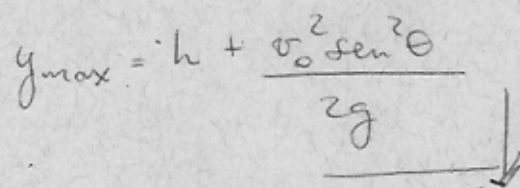 y_max = h + v₀² sen²θ
2g